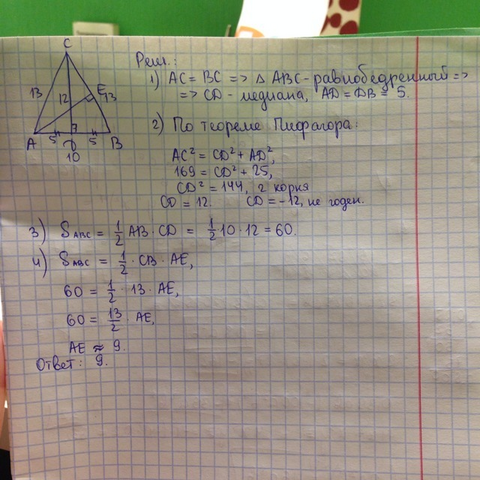 C
Реш.:
13 12 E 13
A 5 D 5 B
10
1) AC = BC => △ ABC - равнобедренный =>
=> CD - медиана, AD = DB = 5.
2) По теореме Пифагора:
AC² = CD² + AD²,
169 = CD² + 25,
CD² = 144, 2 корня
CD = 12. CD = -12, не годен.
3) S ABC = 1/2 AB · CD = 1/2 10 · 12 = 60.
4) S ABC = 1/2 · CB · AE,
60 = 1/2 · 13 · AE,
60 = 13/2 · AE,
AE ≈ 9.
Ответ: 9.